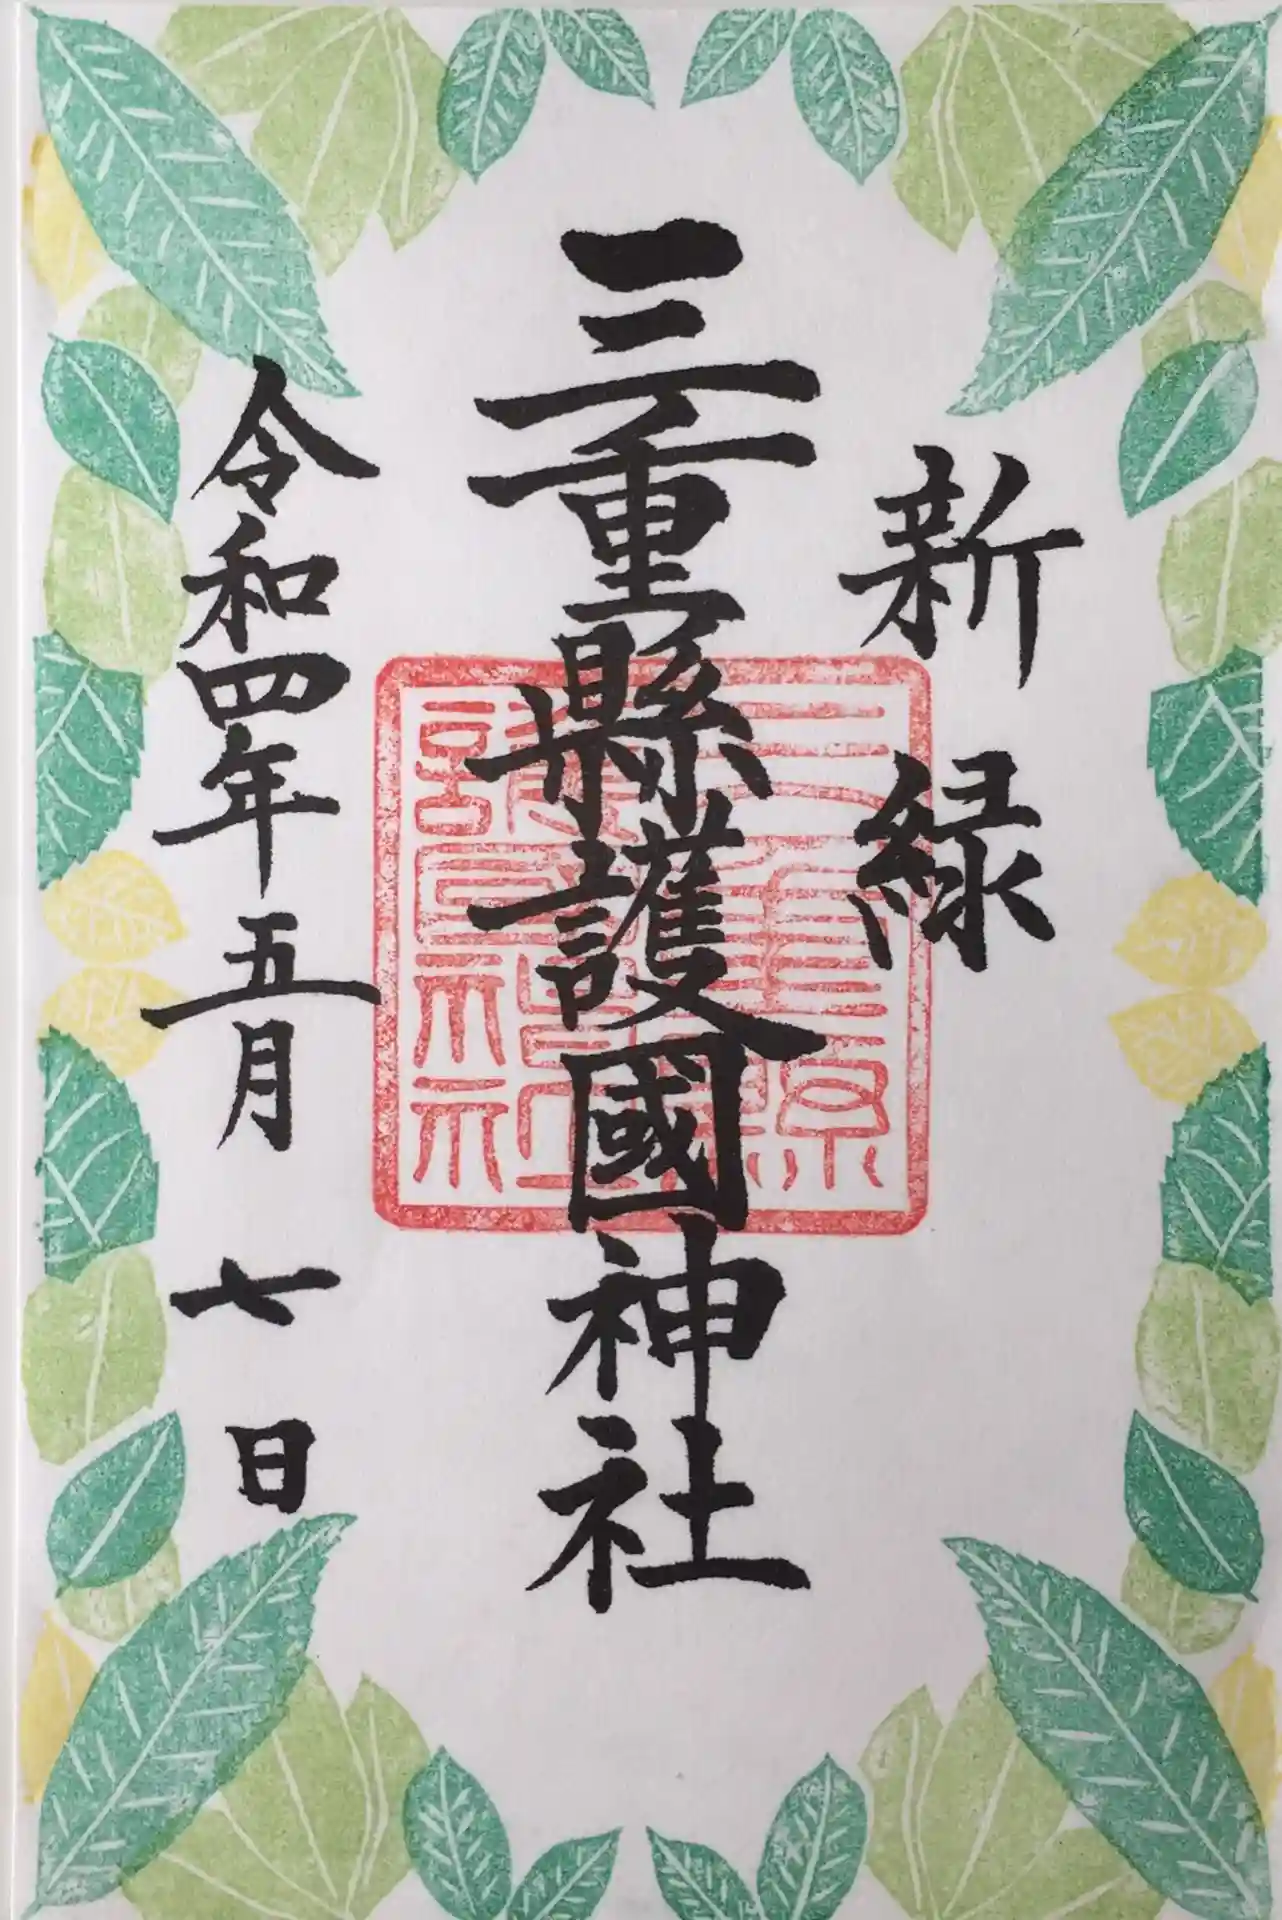 新緑
三重縣護國神社
令和四年五月七日
三重縣護國神社